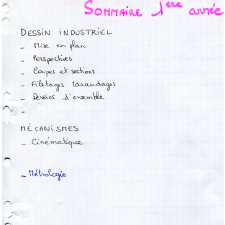 SOMMAIRE 1ère année
DESSIN INDUSTRIEL
- Mise en plan
- Perspectives
- Coupes et sections
- Filetages taraudages
- Dessins d'ensemble
-
MÉCANISMES
- Cinématique
- Métrologie